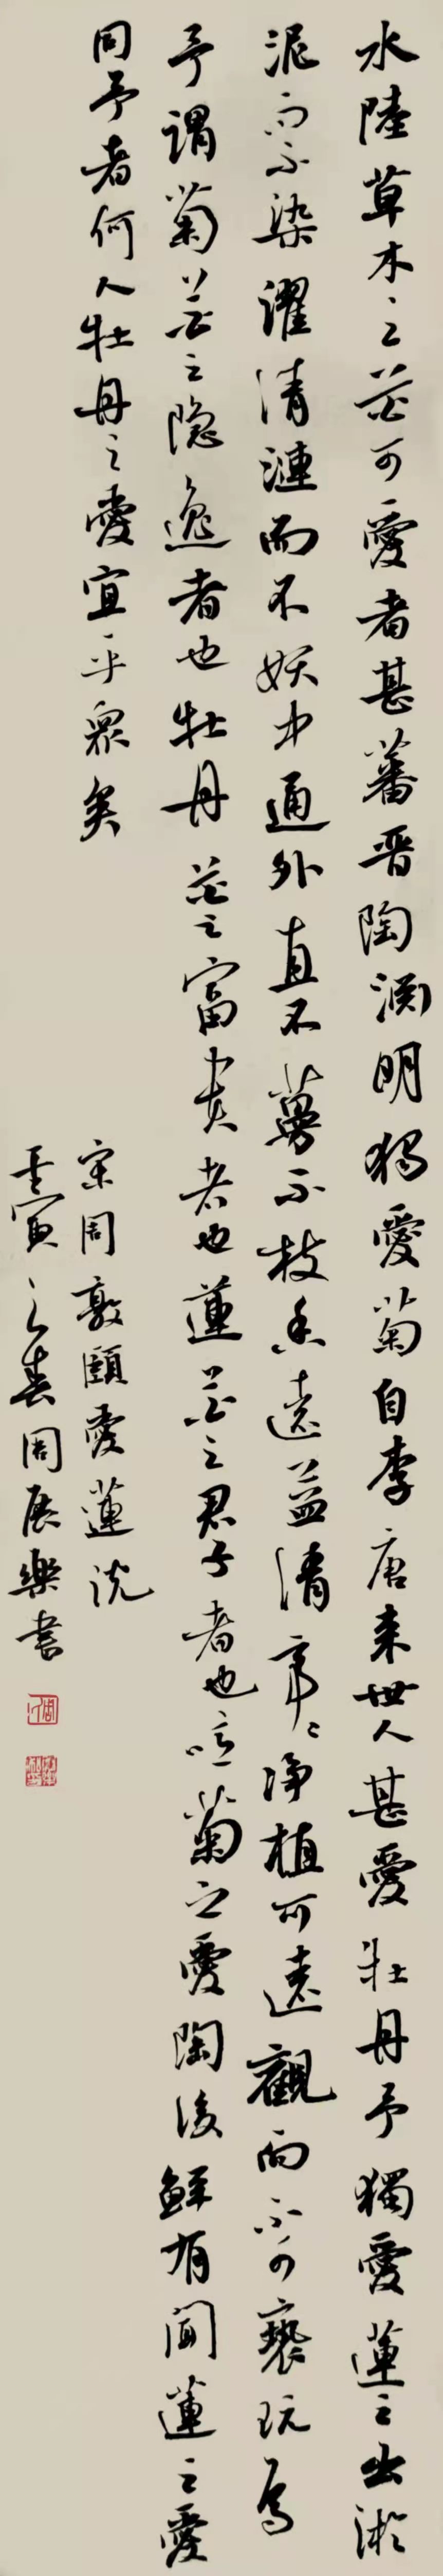 水陸草木之花可愛者甚蕃晋陶渊明独愛菊自李唐来世人甚愛牡丹予獨愛蓮之出淤
泥而不染濯清漣而不妖中通外直不蔓不枝香遠益清亭々净植可遠觀而不可褻玩焉
予謂菊花之隐逸者也牡丹花之富贵者也蓮花之君子者也噫菊之愛陶後鮮有聞蓮之愛
同予者何人牡丹之愛宜乎眾矣
宋周敦頤愛蓮说
壬寅之春周展樂书